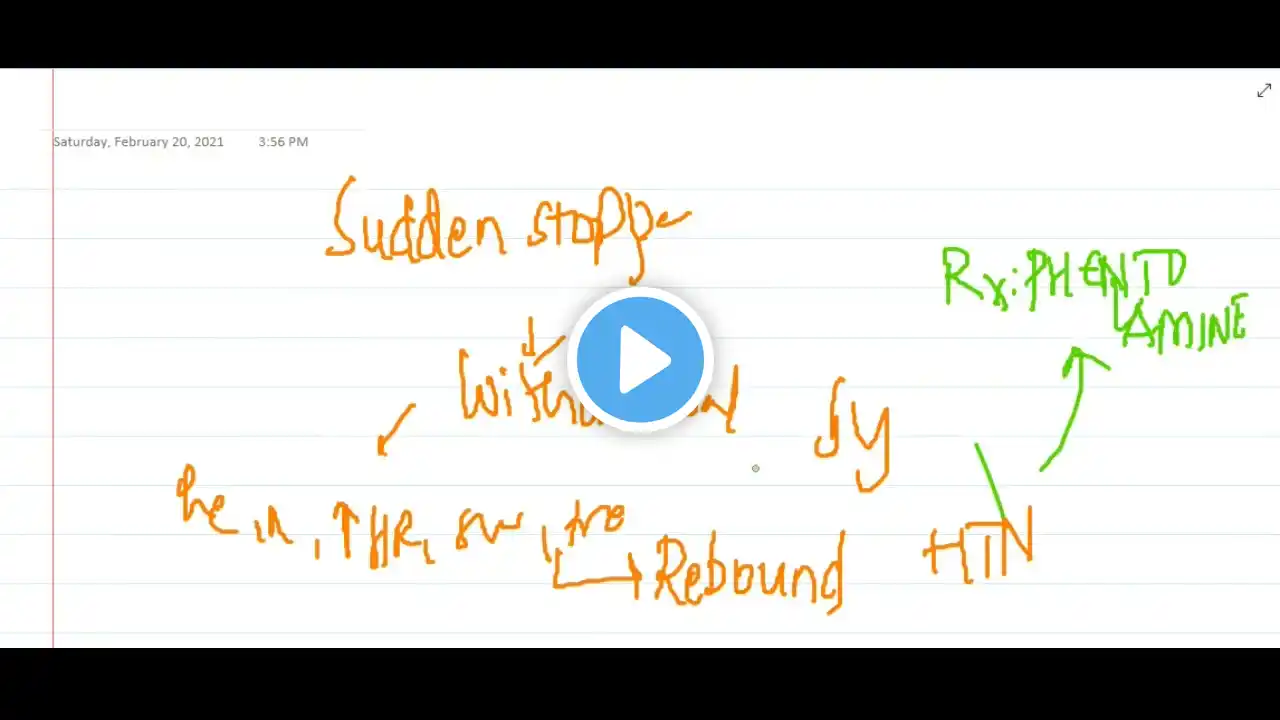 Saturday, February 20, 2021 3:56 PM
Sudden stopp
Rx: PHENTO
LAMINE
Sy
he in, ↑HR, sw, tre
Rebound HTN